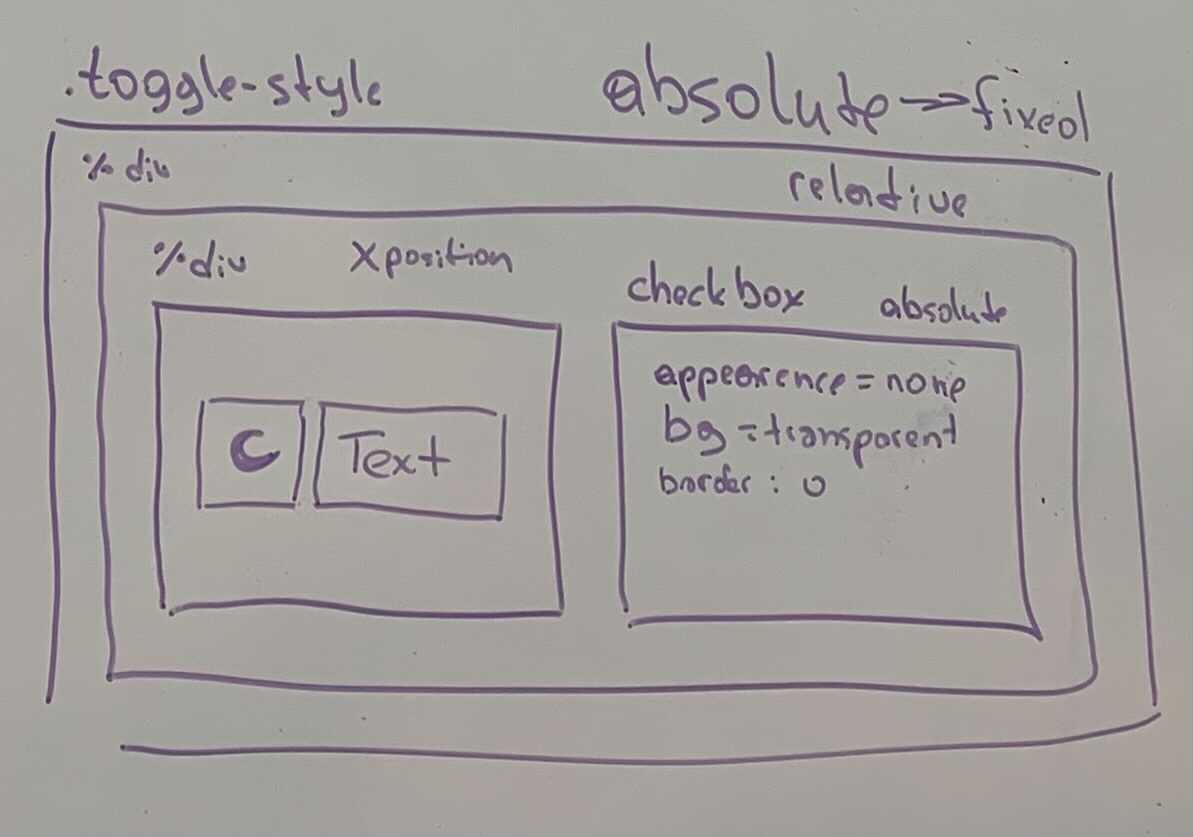 .toggle-style absolute → fixed
% div relative
% div X position
checkbox absolute
C Text
appearence = none
bg = transparent
border : 0